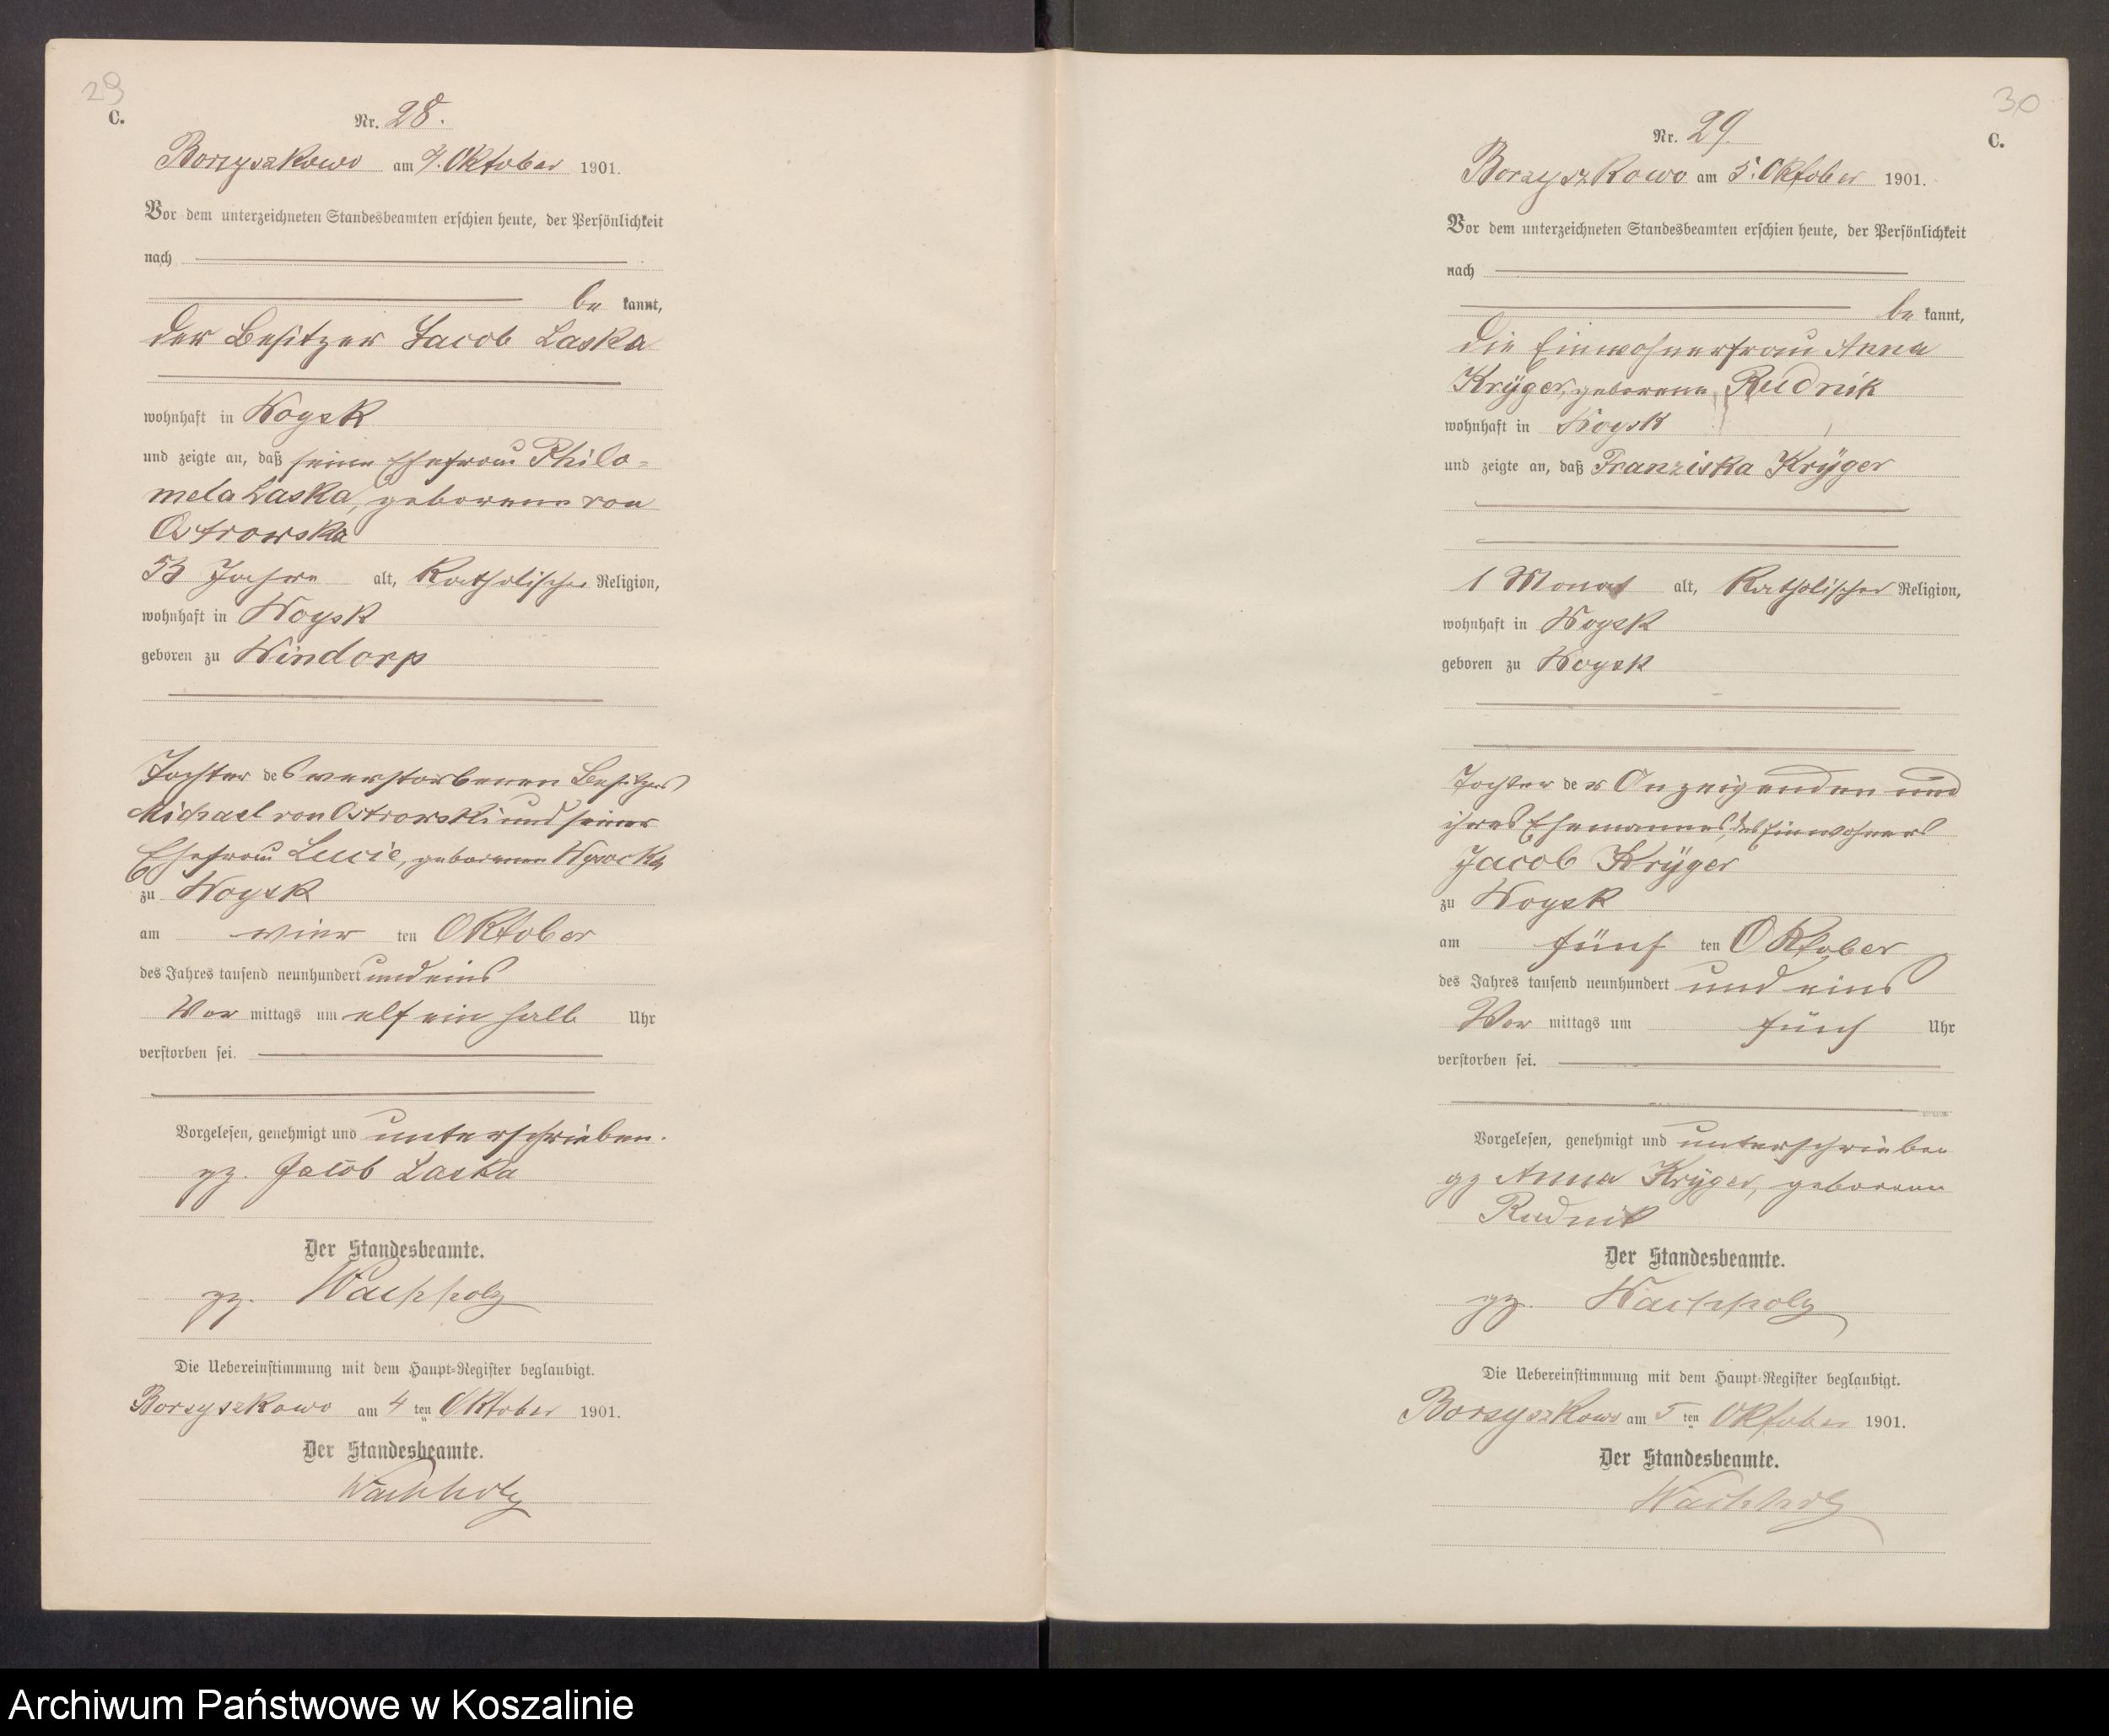 29
C.
Nr. 28.
Borzyszkowo am 4. Oktober 1901.
Vor dem unterzeichneten Standesbeamten erschien heute, der Persönlichkeit
nach
be kannt,
der Besitzer Jacob Laska
wohnhaft in Woysk
und zeigte an, daß seine Ehefrau Philo=
mela Laska, geborene von
Ostrowska
53 Jahre alt, Katholischer Religion,
wohnhaft in Woysk
geboren zu Windorp
Tochter des verstorbenen Besitzers
Michael von Ostrowski und seiner
Ehefrau Lucie, geborenen Wysocka
zu Woysk
am vier ten Oktober
des Jahres tausend neunhundert und eins
Vor mittags um elf ein halb Uhr
verstorben sei.
Vorgelesen, genehmigt und unterschrieben.
gz. Jacob Laska
Der Standesbeamte.
gz. Wachholz
Die Uebereinstimmung mit dem Haupt-Register beglaubigt.
Borzyszkowo am 4 ten Oktober 1901.
Der Standesbeamte.
Wachholz
30
C.
Nr. 29.
Borzyszkowo am 5. Oktober 1901.
Vor dem unterzeichneten Standesbeamten erschien heute, der Persönlichkeit
nach
be kannt,
die Einwohnerfrau Anna
Krÿger, geborene Rudnik
wohnhaft in Woysk
und zeigte an, daß Franziska Krÿger
1 Monat alt, Katholischer Religion,
wohnhaft in Woysk
geboren zu Woysk
Tochter der Anzeigenden und
ihres Ehemannes, des Einwohners
Jacob Krÿger
zu Woysk
am fünf ten Oktober
des Jahres tausend neunhundert und eins
Vor mittags um fünf Uhr
verstorben sei.
Vorgelesen, genehmigt und unterschrieben
gz Anna Krÿger, geborene
Rudnik
Der Standesbeamte.
gz. Wachholz
Die Uebereinstimmung mit dem Haupt-Register beglaubigt.
Borzyszkowo am 5 ten Oktober 1901.
Der Standesbeamte.
Wachholz
Archiwum Państwowe w Koszalinie